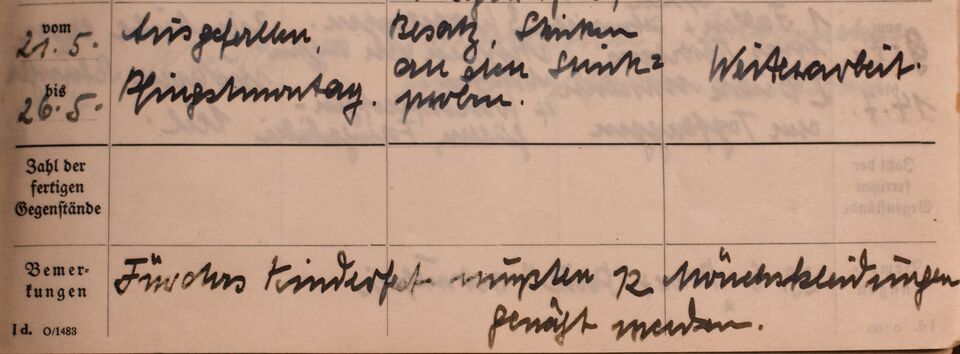 vom
21. 5.
bis
26. 5.
Ausgefallen,
Pfingstmontag.
Besatz, Stricken
an den Strick=
proben.
Weiterarbeit.
Zahl der
fertigen
Gegenstände
Bemer-
kungen
Für das Kinderfest mußten 12 Mönchskleidungen
genäht werden.
I d. O/1483